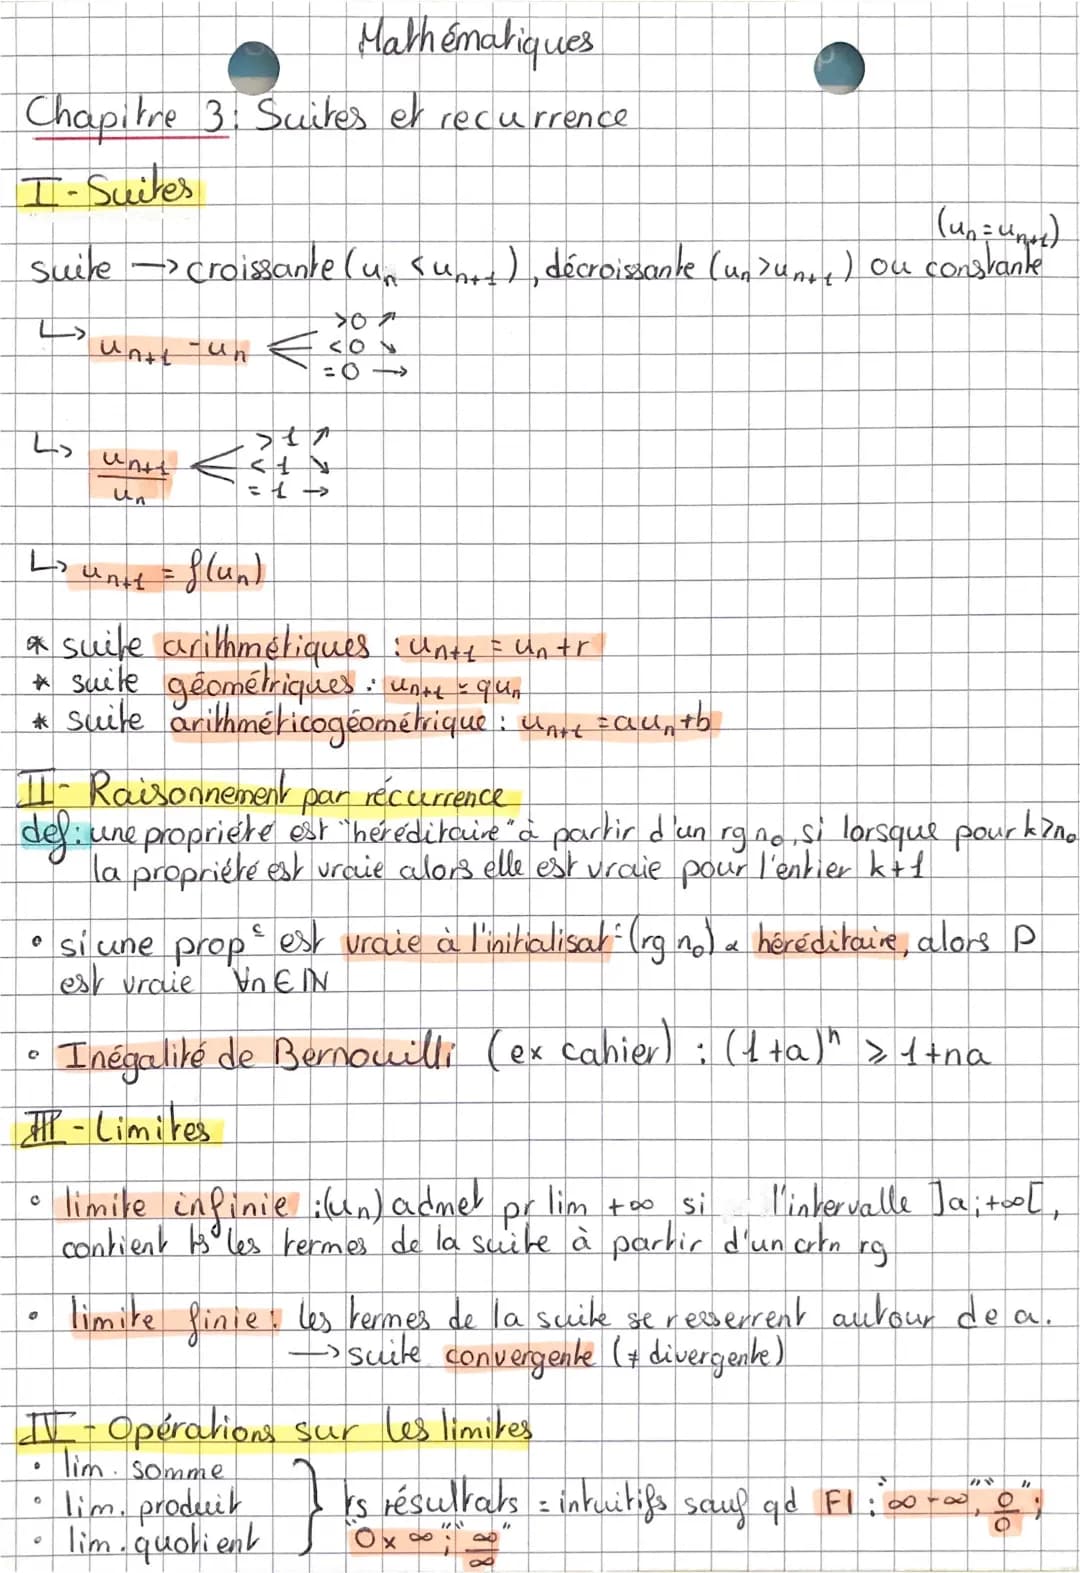 Mathématiques
Chapitre 3: Suites et recurrence
I - Suites
(uₙ = uₙ₊₁)
suite → croissante (uₙ < uₙ₊₁), décroissante (uₙ > uₙ₊₁) ou constante
↳ uₙ₊₁ - uₙ
>0 ↗
<0 ↘
=0 →
↳ uₙ₊₁ / uₙ
>1 ↗
<1 ↘
=1 →
↳ uₙ₊₁ = f(uₙ)
* suite arithmétiques : uₙ₊₁ = uₙ + r
* suite géométriques : uₙ₊₁ = quₙ
* suite arithméticogéométrique : uₙ₊₁ = auₙ + b
II - Raisonnement par récurrence
def : une propriété est "héréditaire" à partir d'un rg n₀, si lorsque pour k ≥ n₀
la propriété est vraie alors elle est vraie pour l'entier k+1
• si une propᵉ est vraie à l'initialisat° (rg n₀) & héréditaire, alors P
est vraie ∀n ∈ ℕ
• Inégalité de Bernouilli (ex cahier) : (1+a)ⁿ ≥ 1+na
III - Limites
• limite infinie : (uₙ) admet pr lim +∞ si l'intervalle ]a;+∞[,
contient ts les termes de la suite à partir d'un crtn rg
• limite finie : les termes de la suite se resserrent autour de a.
→ suite convergente (≠ divergente)
IV - Opérations sur les limites
• lim. somme
• lim. produit
• lim. quotient
} ts résultats = intuitifs sauf qd FI : "∞-∞", "0/0";
"0×∞"; "∞/∞"